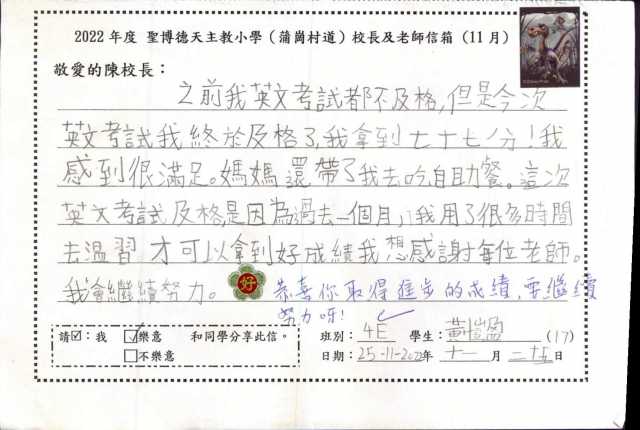 2022 年度 聖博德天主教小學（蒲崗村道）校長及老師信箱（11 月）
敬愛的陳校長：
之前我英文考試都不及格，但是今次
英文考試我終於及格了，我拿到七十七分！我
感到很滿足。媽媽還帶了我去吃自助餐。這次
英文考試及格是因為過去一個月，我用了很多時間
去溫習 才可以拿到好成績我想感謝每位老師。
我會繼續努力。 好 恭喜你取得進步的成績，要繼續
努力呀！
請☑：我 ☑樂意 和同學分享此信。 班別： 4E 學生： 黃愷盈 (17)
□不樂意 日期： 25-11-2022年 十一 月 二十五 日